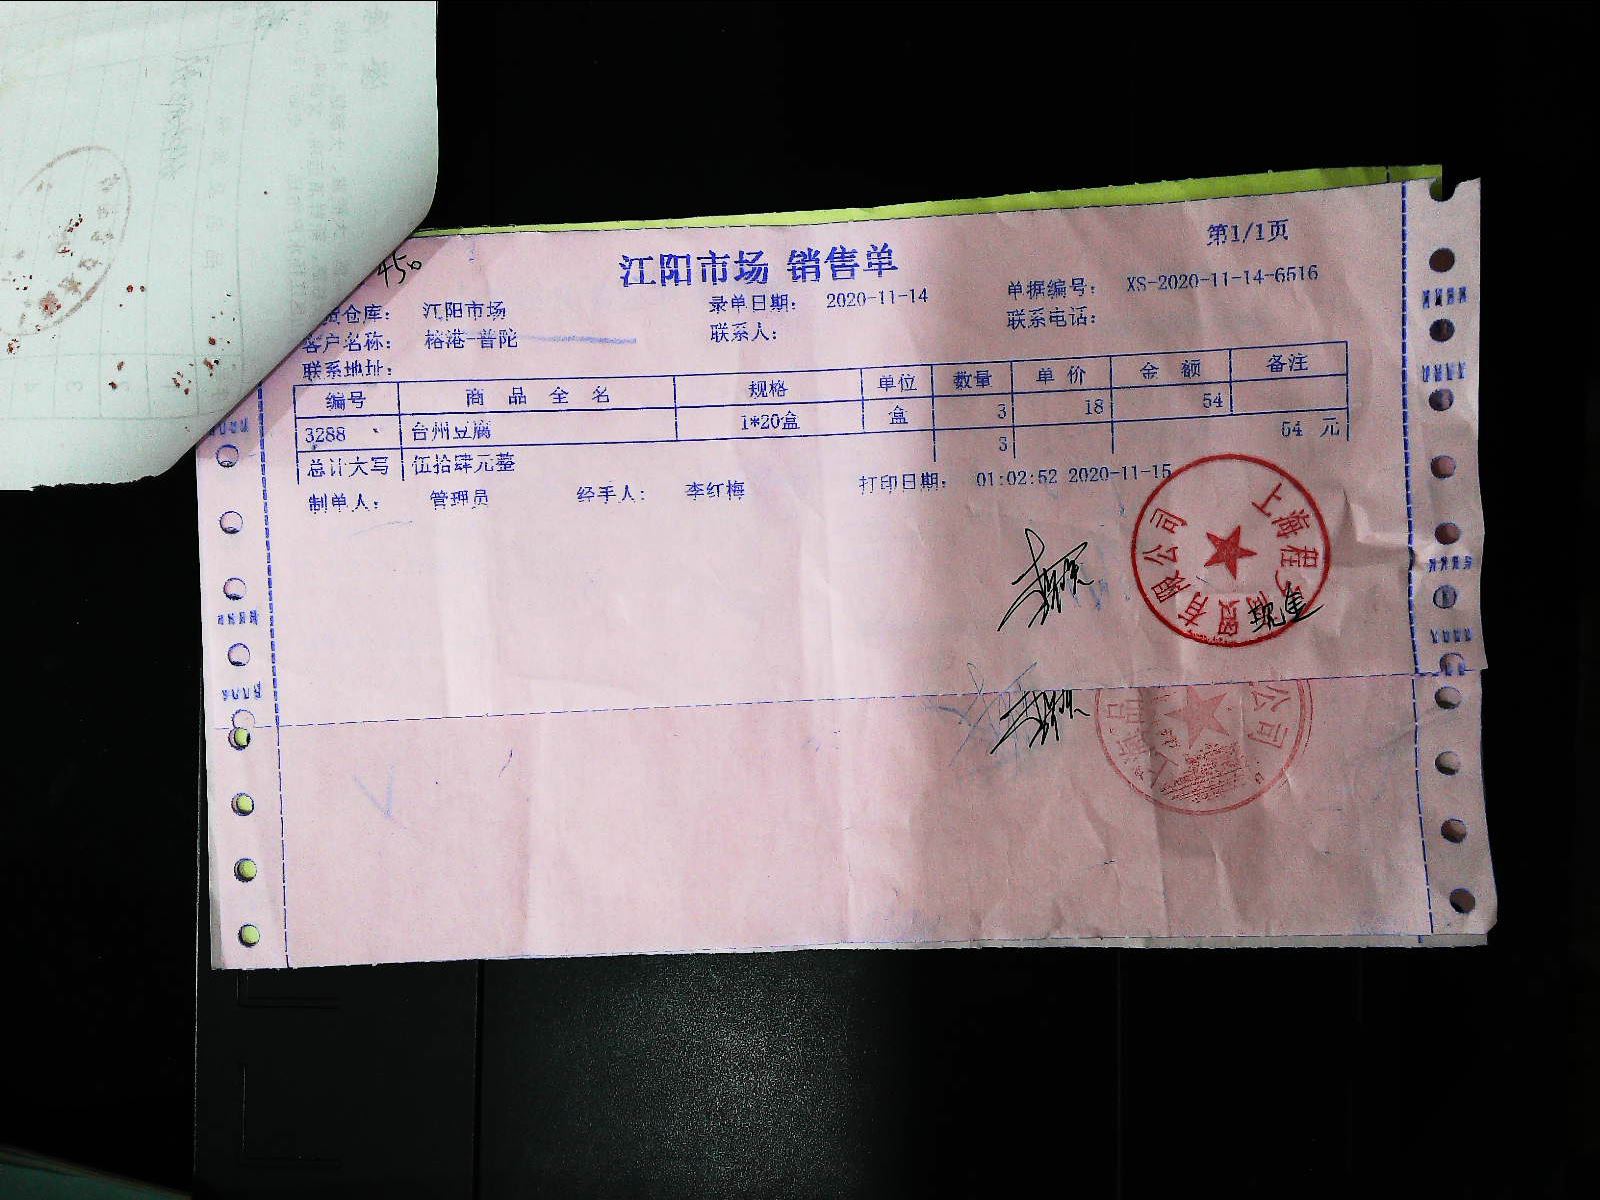 450
江阳市场 销售单
第1/1页
仓库： 江阳市场 录单日期： 2020-11-14 单据编号： XS-2020-11-14-6516
客户名称： 榕港-普陀 联系人： 联系电话：
联系地址：
编号 商品全名 规格 单位 数量 单价 金额 备注
3288 台州豆腐 1*20盒 盒 3 18 54
总计大写 伍拾肆元整 3 54 元
制单人： 管理员 经手人： 李红梅 打印日期： 01:02:52 2020-11-15